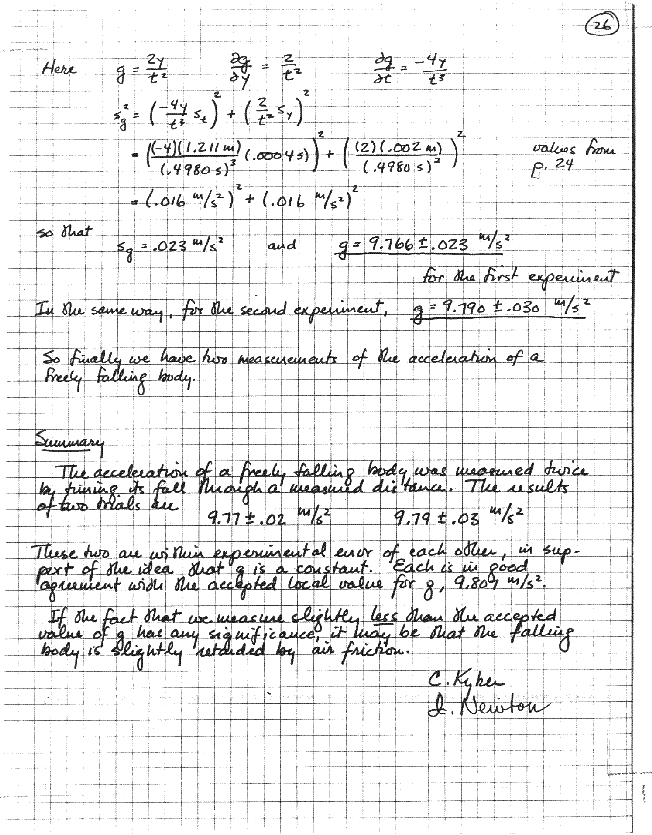 26
Here g = 2y/t² ∂g/∂y = 2/t² ∂g/∂t = -4y/t³
s_g² = (-4y/t³ s_t)² + (2/t² s_y)²
= ((-4)(1.211 m)/(.4980 s)³ (.0004 s))² + ((2)(.002 m)/(.4980 s)²)² values from p. 24
= (.016 m/s²)² + (.016 m/s²)²
so that
s_g = .023 m/s² and g = 9.766 ± .023 m/s²
for the first experiment
In the same way, for the second experiment, g = 9.790 ± .030 m/s²
So finally we have two measurements of the acceleration of a
freely falling body.
Summary
The acceleration of a freely falling body was measured twice
by timing its fall through a measured distance. The results
of two trials are
9.77 ± .02 m/s² 9.79 ± .03 m/s²
These two are within experimental error of each other, in sup-
port of the idea that g is a constant. Each is in good
agreement with the accepted local value for g, 9.809 m/s².
If the fact that we measure slightly less than the accepted
value of g has any significance, it may be that the falling
body is slightly retarded by air friction.
C. Kyker
I. Newton